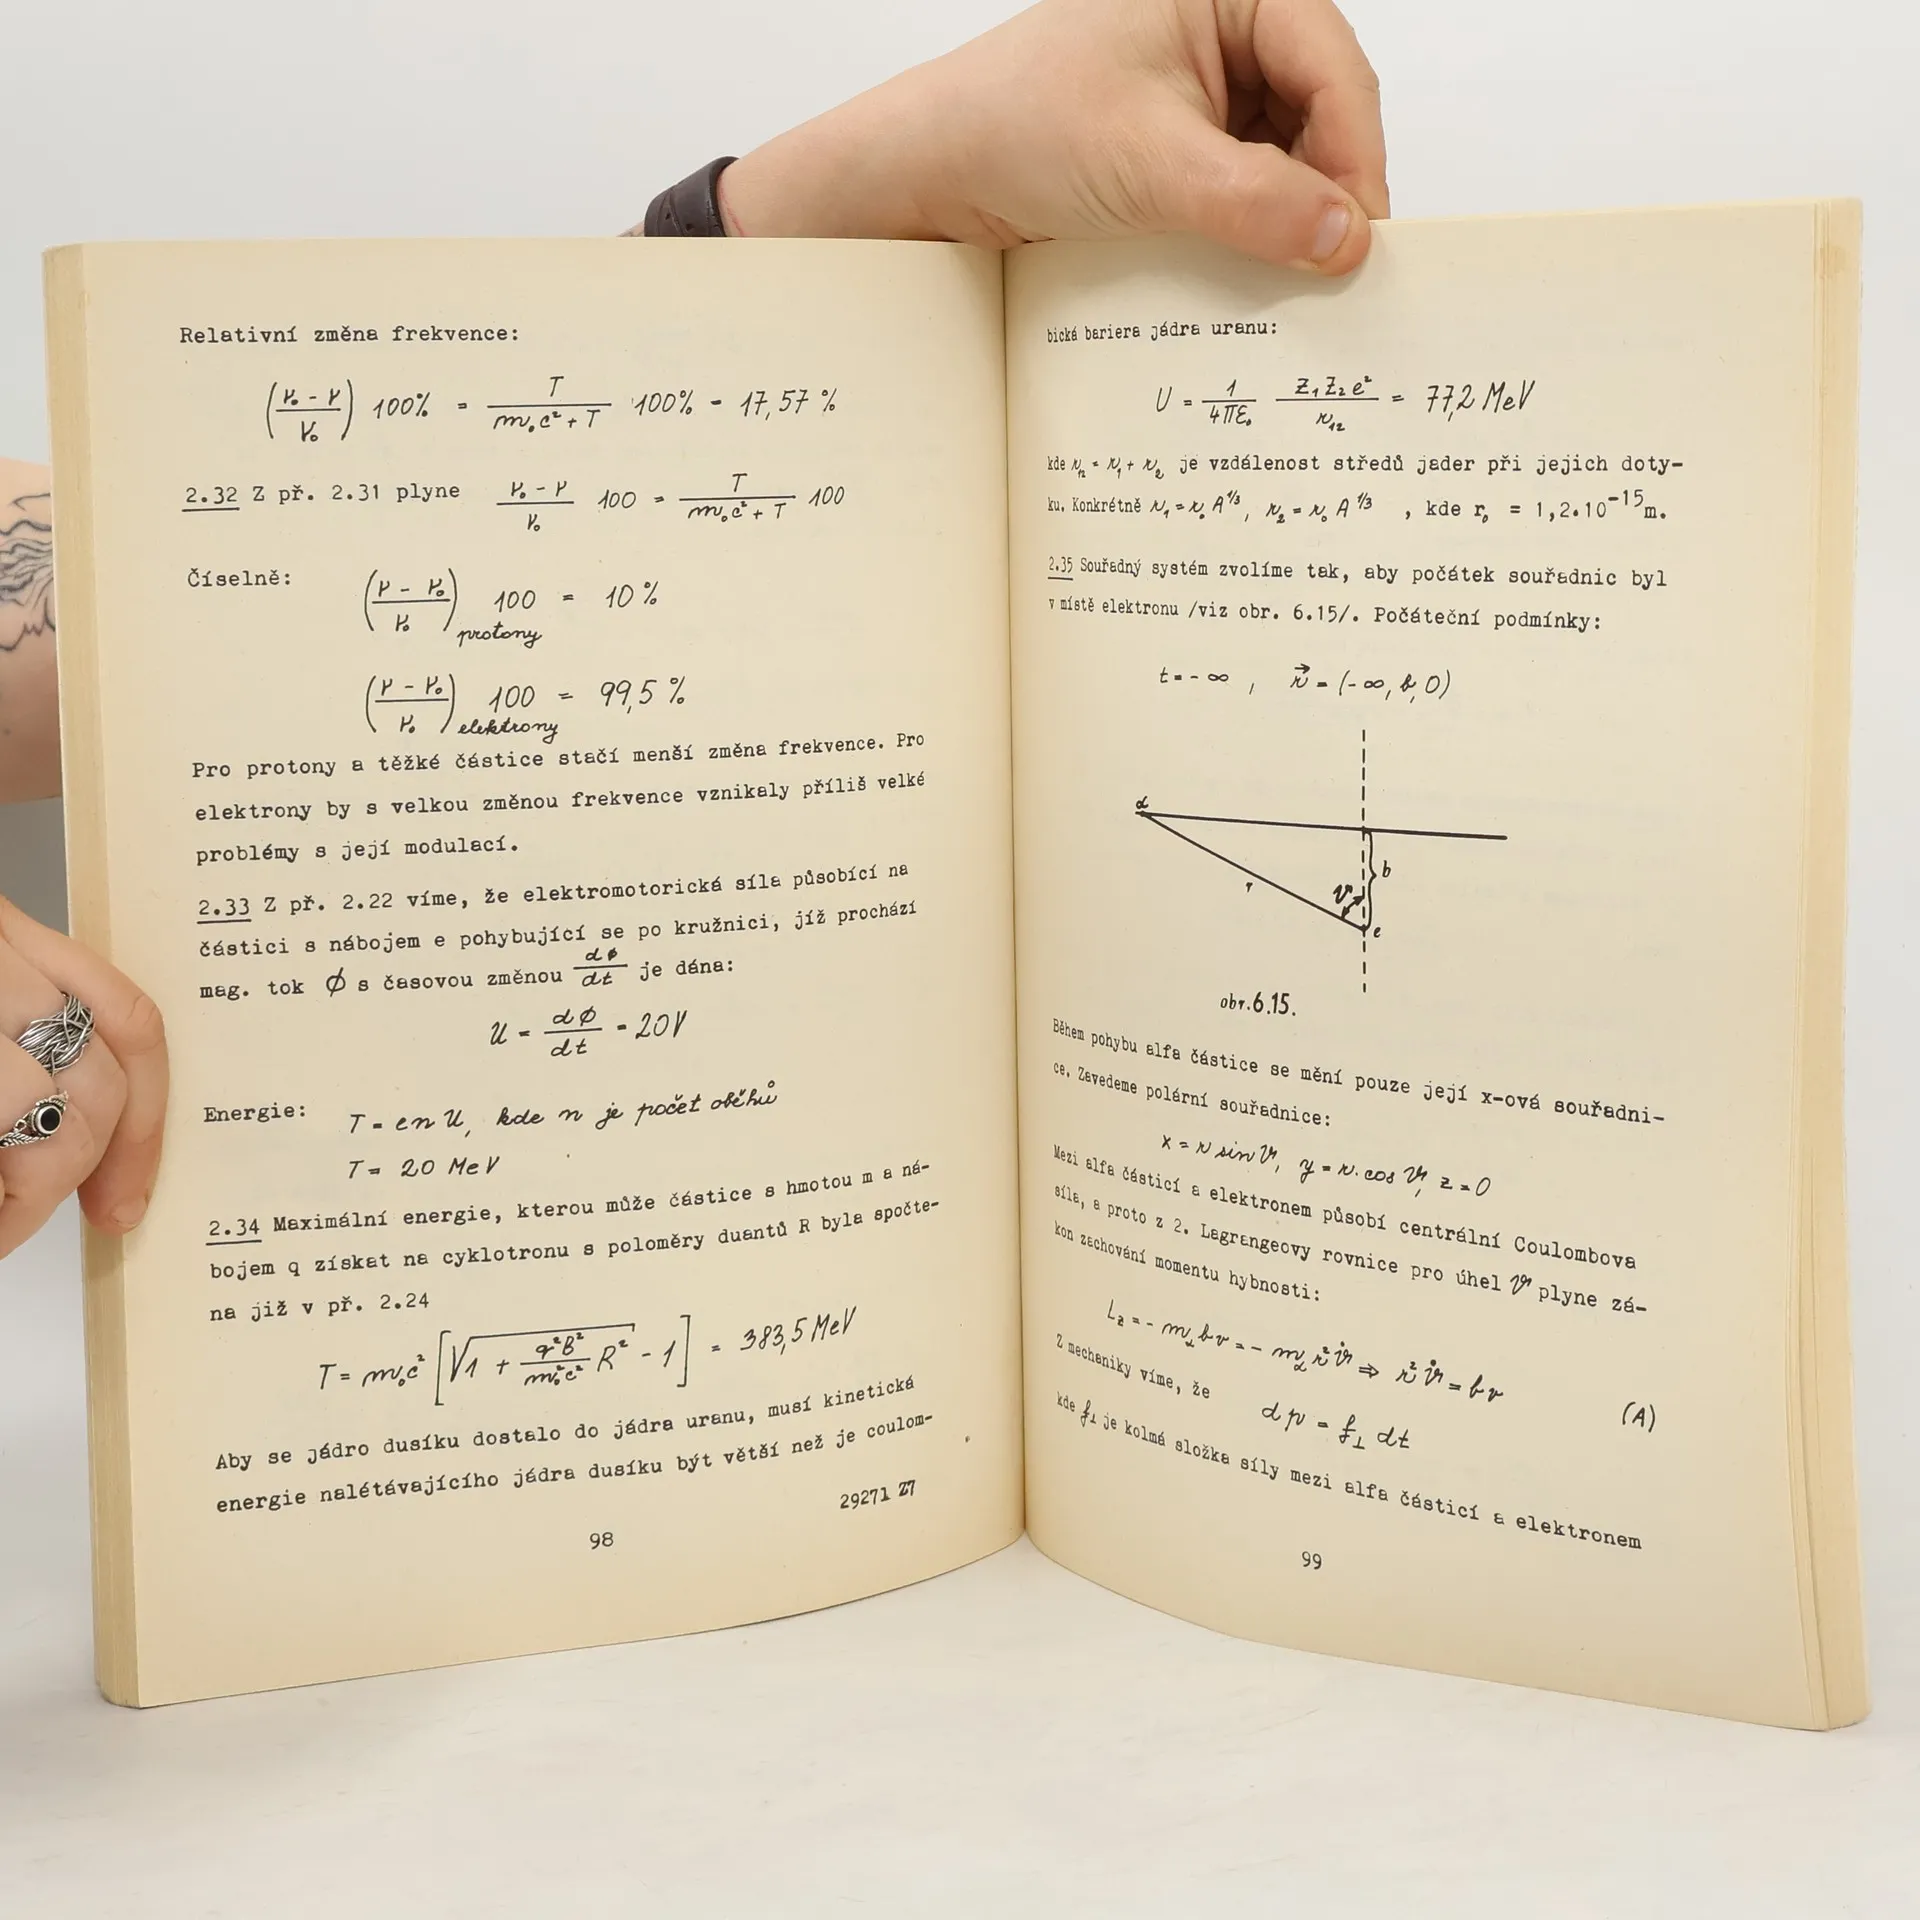 Relativní změna frekvence:
(ν₀ - ν / ν₀) 100% = T / m₀c² + T 100% = 17,57 %
2.32 Z př. 2.31 plyne ν₀ - ν / ν₀ 100 = T / m₀c² + T 100
Číselně: (ν - ν₀ / ν₀) protony 100 = 10 %
(ν - ν₀ / ν₀) elektrony 100 = 99,5 %
Pro protony a těžké částice stačí menší změna frekvence. Pro
elektrony by s velkou změnou frekvence vznikaly příliš velké
problémy s její modulací.
2.33 Z př. 2.22 víme, že elektromotorická síla působící na
částici s nábojem e pohybující se po kružnici, jíž prochází
mag. tok Ø s časovou změnou dø/dt je dána:
U = dØ/dt = 20V
Energie: T = en U, kde n je počet oběhů
T = 20 MeV
2.34 Maximální energie, kterou může částice s hmotou m a ná-
bojem q získat na cyklotronu s poloměry duantů R byla spočte-
na již v př. 2.24
T = m₀c² [√1 + q²B² / m₀²c² R² - 1] = 383,5 MeV
Aby se jádro dusíku dostalo do jádra uranu, musí kinetická
energie nalétávajícího jádra dusíku být větší než je coulom-
29271 Z7
98
bická bariera jádra uranu:
U = 1 / 4πε₀ Z₁Z₂e² / r₁₂ = 77,2 MeV
kde r₁₂ = r₁ + r₂ je vzdálenost středů jader při jejich doty-
ku. Konkrétně r₁ = r₀ A^1/3, r₂ = r₀ A^1/3 , kde r₀ = 1,2.10⁻¹⁵m.
2.35 Souřadný systém zvolíme tak, aby počátek souřadnic byl
v místě elektronu /viz obr. 6.15/. Počáteční podmínky:
t = - ∞ , r⃗ = (-∞, b, 0)
α
b
r
ϑ
e
obr.6.15.
Během pohybu alfa částice se mění pouze její x-ová souřadni-
ce. Zavedeme polární souřadnice:
x = r sin ϑ, y = r. cos ϑ, z = 0
Mezi alfa částicí a elektronem působí centrální Coulombova
síla, a proto z 2. Lagrangeovy rovnice pro úhel ϑ plyne zá-
kon zachování momentu hybnosti:
L₂ = - m_α b v = - m_α r² ϑ̇ ⇒ r² ϑ̇ = b v (A)
Z mechaniky víme, že
dp = f⊥ dt
kde f⊥ je kolmá složka síly mezi alfa částicí a elektronem
99